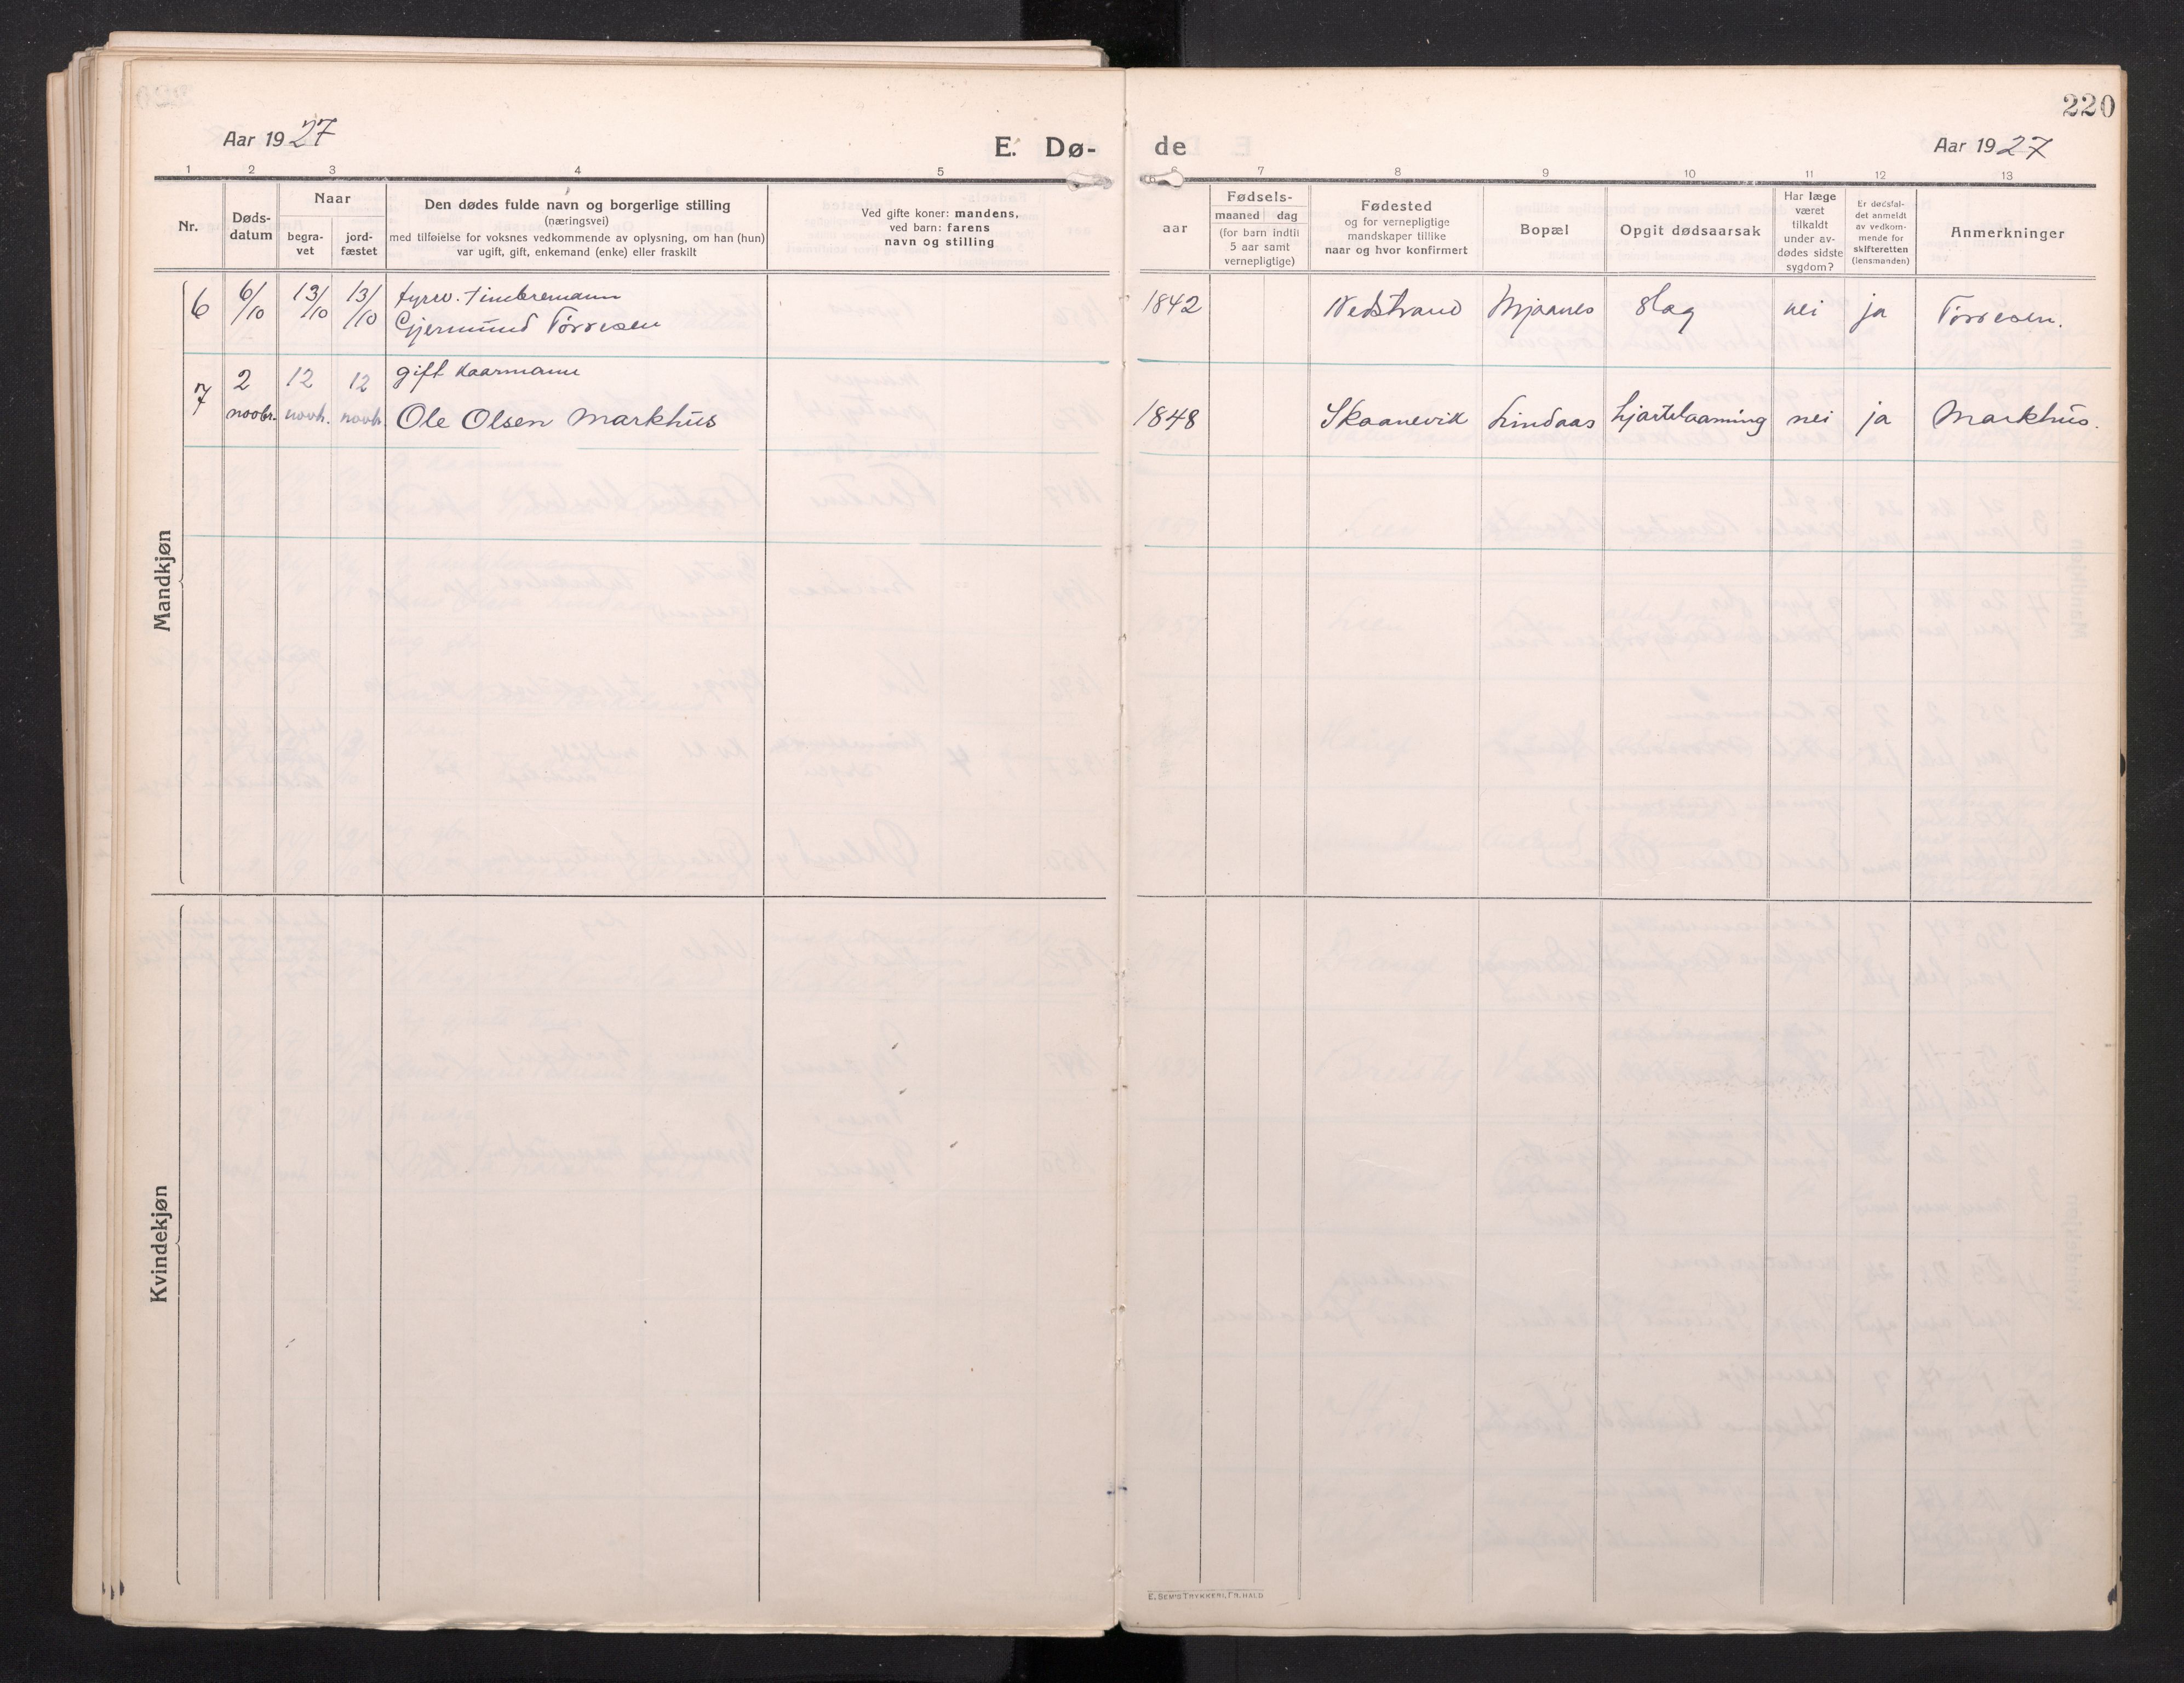 220
Aar 1927
E. Dø-
de
Aar 1927
1 2 3 4 5
6 7 8 9 10 11 12 13
Nr.
Døds-
datum
Naar
begra-
vet
jord-
fæstet
Den dødes fulde navn og borgerlige stilling
(næringsvei)
med tilføielse for voksnes vedkommende av oplysning, om han (hun)
var ugift, gift, enkemand (enke) eller fraskilt
Ved gifte koner: mandens,
ved barn: farens
navn og stilling
aar
Fødsels-
maaned dag
(for barn indtil
5 aar samt
vernepligtige)
Fødested
og for vernepligtige
mandskaper tillike
naar og hvor konfirmert
Bopæl
Opgit dødsaarsak
Har læge
været
tilkaldt
under av-
dødes sidste
sygdom?
Er dødsfal-
det anmeldt
av vedkom-
mende for
skifteretten
(lensmanden)
Anmerkninger
Mandkjøn
6 6/10 13/10 13/10 fyrrv. timbremann
Gjermund Tórresen
1842 Nedstrand Mjaanes Slag nei ja Tórresen.
7 2 12 12 gift kaarmann
novbr. novb. novb. Ole Olsen Markhus
1848 Skaanevik Lindaas hjartelaaming nei ja Markhus.
Kvindekjøn
E. SEM'S TRYKKERI, FR. HALD